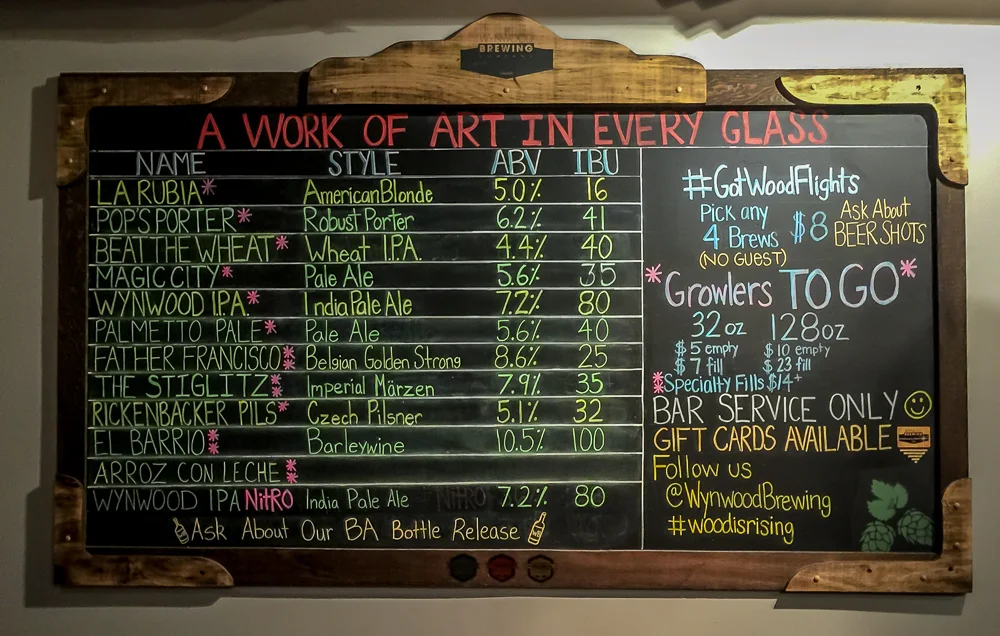 BREWING
A WORK OF ART IN EVERY GLASS
NAME STYLE ABV IBU
LA RUBIA* American Blonde 5.0% 16
POP'S PORTER* Robust Porter 6.2% 41
BEAT THE WHEAT* Wheat I.P.A. 4.4% 40
MAGIC CITY* Pale Ale 5.6% 35
WYNWOOD I.P.A.* India Pale Ale 7.2% 80
PALMETTO PALE* Pale Ale 5.6% 40
FATHER FRANCISCO** Belgian Golden Strong 8.6% 25
THE STIGLITZ** Imperial Märzen 7.9% 35
RICKENBACKER PILS* Czech Pilsner 5.1% 32
EL BARRIO** Barleywine 10.5% 100
ARROZ CON LECHE**
WYNWOOD IPA NITRO India Pale Ale NITRO 7.2% 80
Ask About Our BA Bottle Release
#GotWoodFlights
Pick any
4 Brews
$8
Ask About
BEER SHOTS
(NO GUEST)
*Growlers TO GO*
32oz 128oz
$5 empty $10 empty
$7 fill $23 fill
**Specialty Fills $14+
BAR SERVICE ONLY
GIFT CARDS AVAILABLE
Follow us
@WynwoodBrewing
#woodisrising